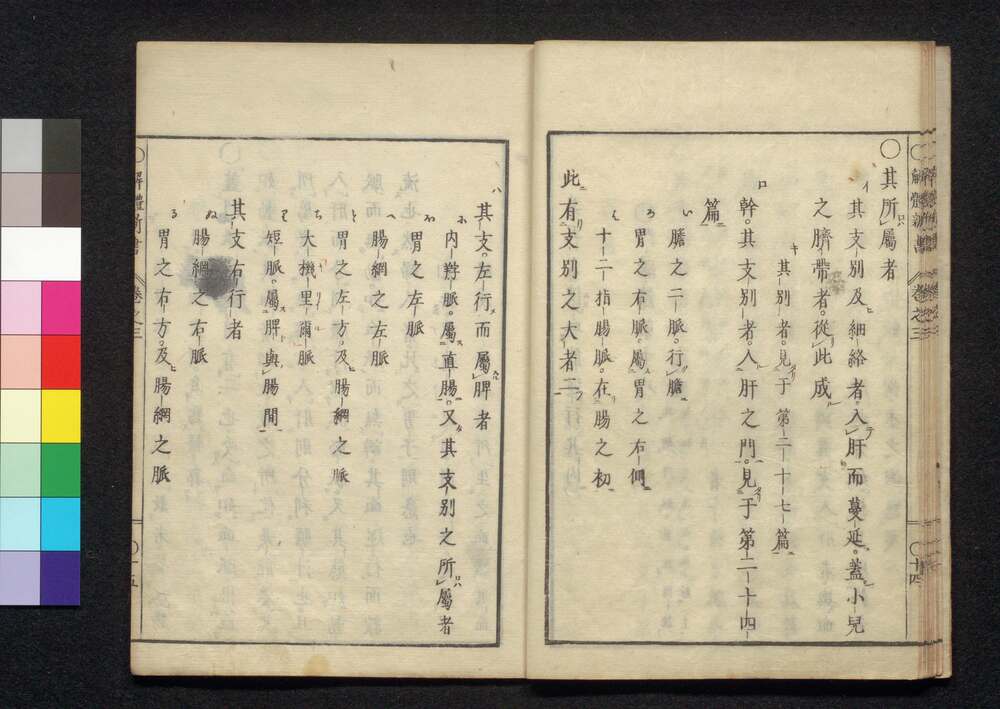 解體新書 卷之三 〇十四
〇其所屬者
イ 其支別及細絡者。入肝而蔓延。蓋小兒
之臍帶者。從此成
キ 其別者。見于第二十七篇
ロ 幹。其支別者。入肝之門。見于第二十四
篇
い 膽之二脈。行膽
ろ 胃之右脈。屬胃之右側
は 十二指腸脈。在腸之初
此有支別之大者二
ハ 其支。左行而屬脾者
に 內痔脈。屬直腸。又其支別之所屬者
ほ 胃之左脈
へ 腸網之左脈
と 胃之左方。及腸網之脈
ち 大機里爾脈
り 短脈。屬脾與腸間
其支右行者
ぬ 腸網之右脈
る 胃之右方。及腸網之脈
〇解體新書 卷之三 〇十五